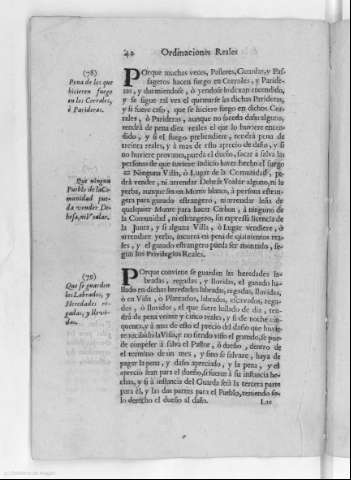 42 Ordinaciones Reales
(78)
Pena de los que
hizieren fuego
en los Corrales,
ò Parideras.
POrque muchas vezes, Pastores, Guardas, y Pas-
sageros hazen fuego en Corrales, y Paride-
ras, y durmiendose, ò yendose lo dexan encendido,
y se sigue tal vez el quemarse las dichas Parideras,
y si fuere caso, que se hiziere fuego en dichos Cor-
rales, ò Parideras, aunque no suceda daño alguno,
tendrà de pena diez reales el que lo huviere encen-
dido, y si el fuego prehendiere, tendrà pena de
treinta reales, y à mas de esso aprecio de daño, y si
no huviere provança, pueda el dueño, sacar à salva las
personas de que tuviere indicio haver hecho el fuego
Que ningun
Pueblo de la Co-
munidad pue-
da vender De-
hesa, ni Vedar.
Ninguna Villa, ò Lugar de la Comunidad, pue-
da vender, ni arrendar Dehesa Vedàr alguno, ni la
yerba, aunque sea en Monte blanco, à persona estran-
gera para ganado estrangero, ni arrendar leña de
qualquier Monte para hazer Carbon, à ninguno de
la Comunidad, ni estrangero, sin expressa licencia de
la Junta, y si alguna Villa, ò Lugar vendiere, ò
arrendare yerbo, incurra en pena de quinientos rea-
les, y el ganado estrangero pueda ser montado, se-
gun los Privilegios Reales.
(79)
Que se guarden
los Labrados, y
Heredades re-
gadas, y llovi-
das.
POrque conviene se guarden las heredades la-
bradas, regadas, y lluvidas, el ganado ha-
llado en dichas heredades labradas, regadas, lluvidas,
ò en Viña, ò Plantados, labrados, rega-
dos, ò lluvidos, el que fuere hallado de dia, ten-
drà de pena veinte y cinco reales, y si de noche cin-
quenta, y à mas de esso el precio del daño que huvie-
re y no siendo visto el ganado, se pue-
da compeler à salva el Pastor, ò dueño, dentro de
el termino de un mes, y sino se salvare, haya de
pagar la pena, y daño apreciado, y la pena, y el
aprecio sean para el dueño, si fuere à su instancia he-
chas, y si à instancia del Guarda serà la tercera parte
para èl, y las dos partes para el Pueblo, teniendo so-
lo derecho el dueño al daño.